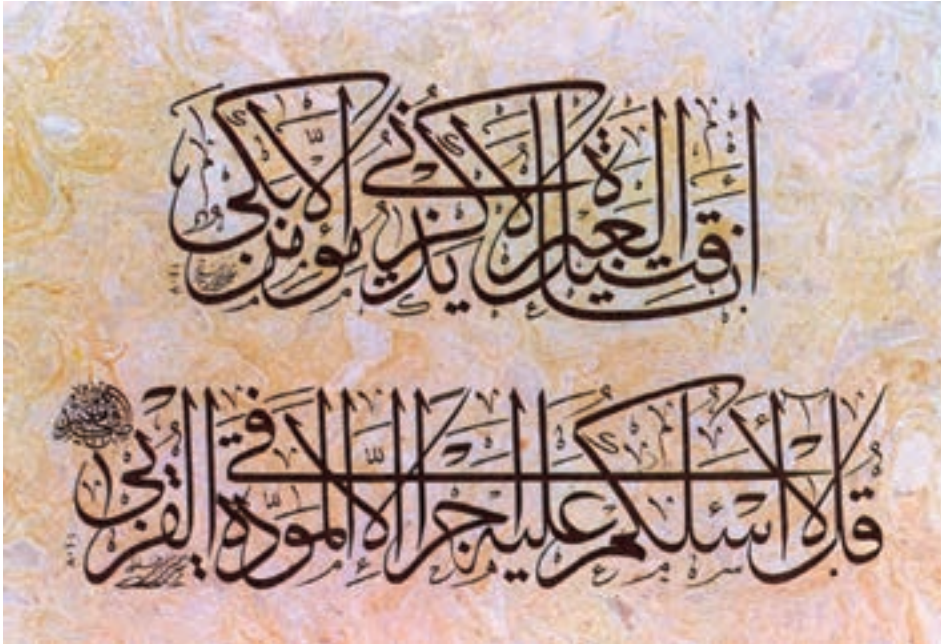 انا قتيل العبرة لا يذكرني مؤمن الا بكى
قل لا أسئلكم عليه أجرا إلا المودة في القربى